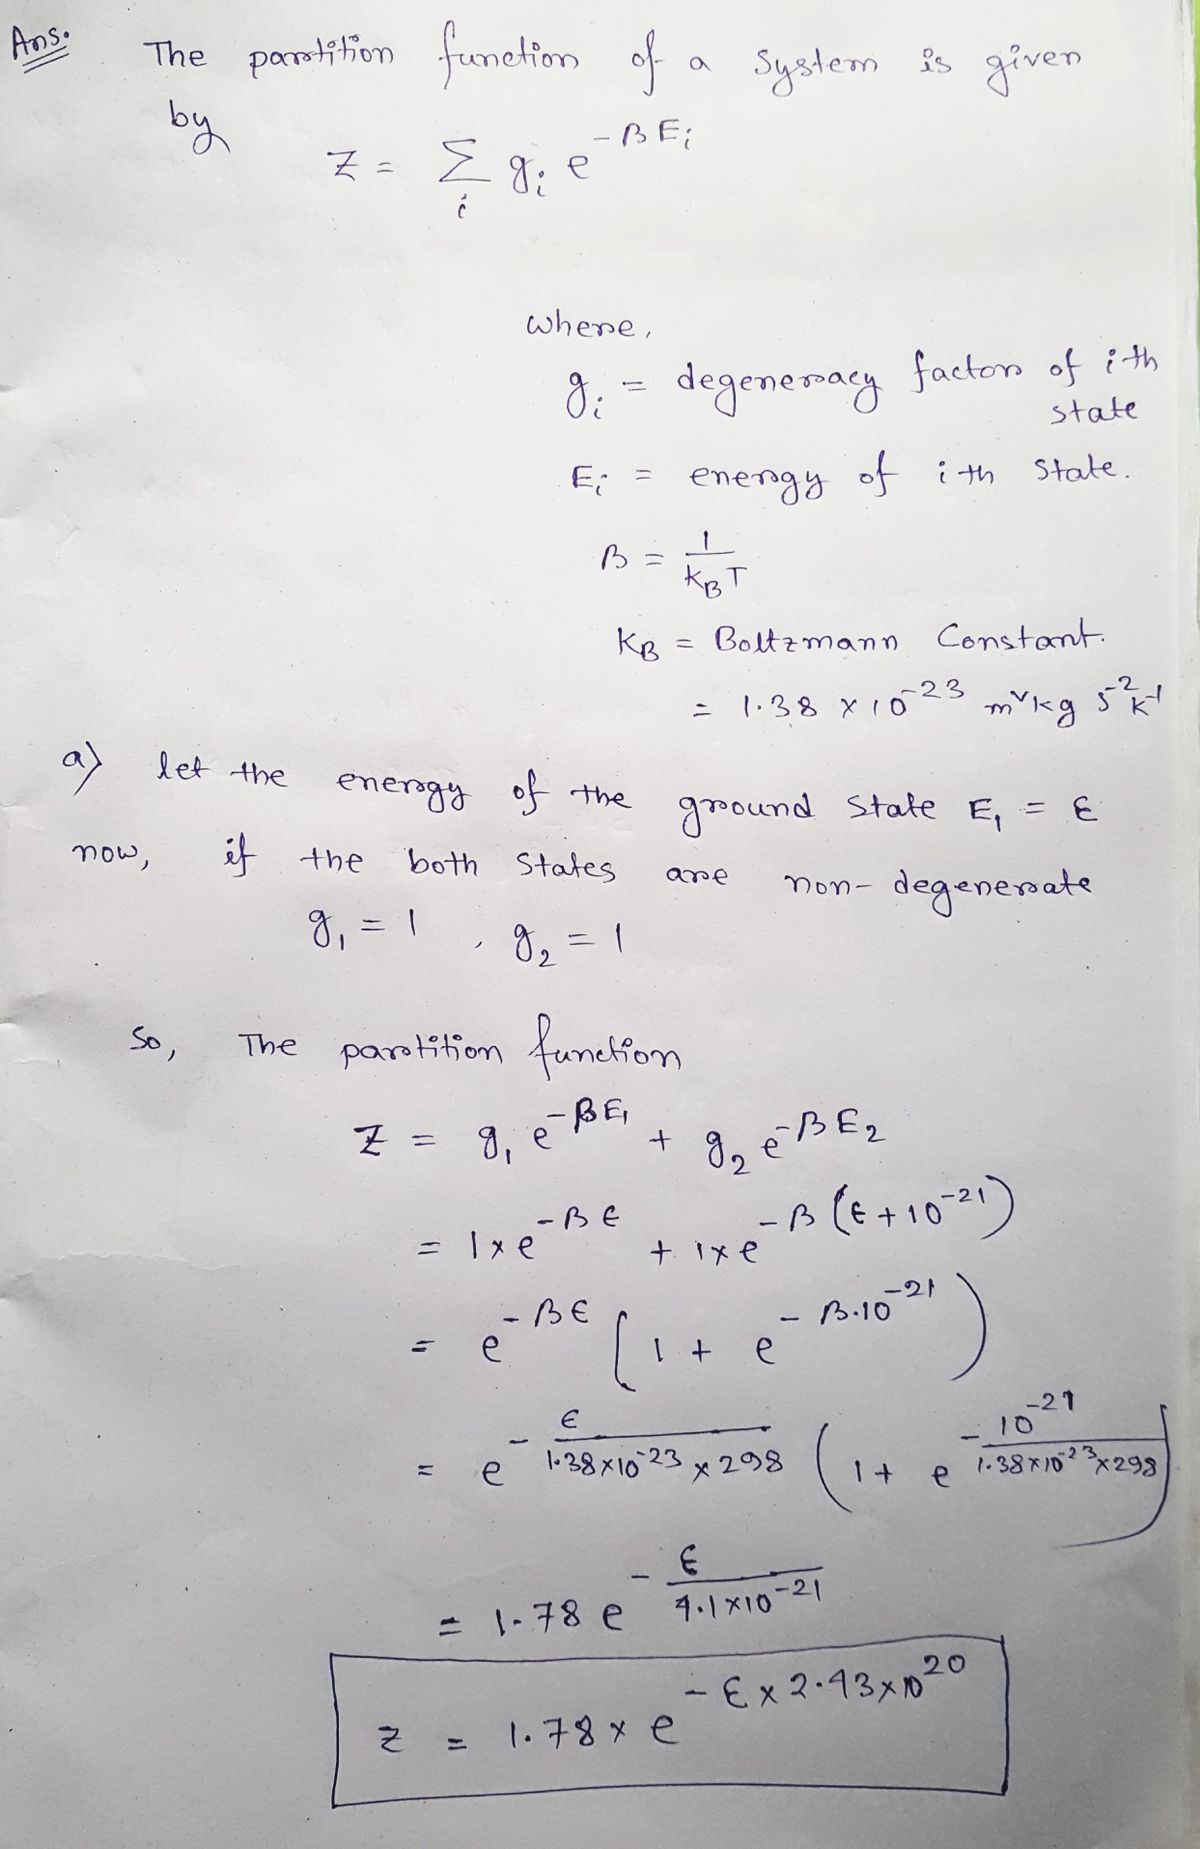 Ans.
The partition function of a system is given
by
Z = Σ_i g_i e^{-βE_i}
where,
g_i = degeneracy factor of i th
state
E_i = energy of i th state.
β = 1/(K_B T)
K_B = Boltzmann Constant.
= 1.38 × 10^{-23} m^v kg s^{-2} k^{-1}
a) let the energy of the ground state E_1 = ε
now, if the both states are non-degenerate
g_1 = 1 , g_2 = 1
So, The partition function
Z = g_1 e^{-βE_1} + g_2 e^{-βE_2}
= 1×e^{-βε} + 1×e^{-β(ε+10^{-21})}
= e^{-βε} (1 + e^{-β.10^{-21}})
= e^{-ε/(1.38×10^{-23}×298)} (1 + e^{-10^{-21}/(1.38×10^{-23}×298)})
= 1.78 e^{-ε/(4.1×10^{-21})}
Z = 1.78 × e^{-ε×2.43×10^{20}}